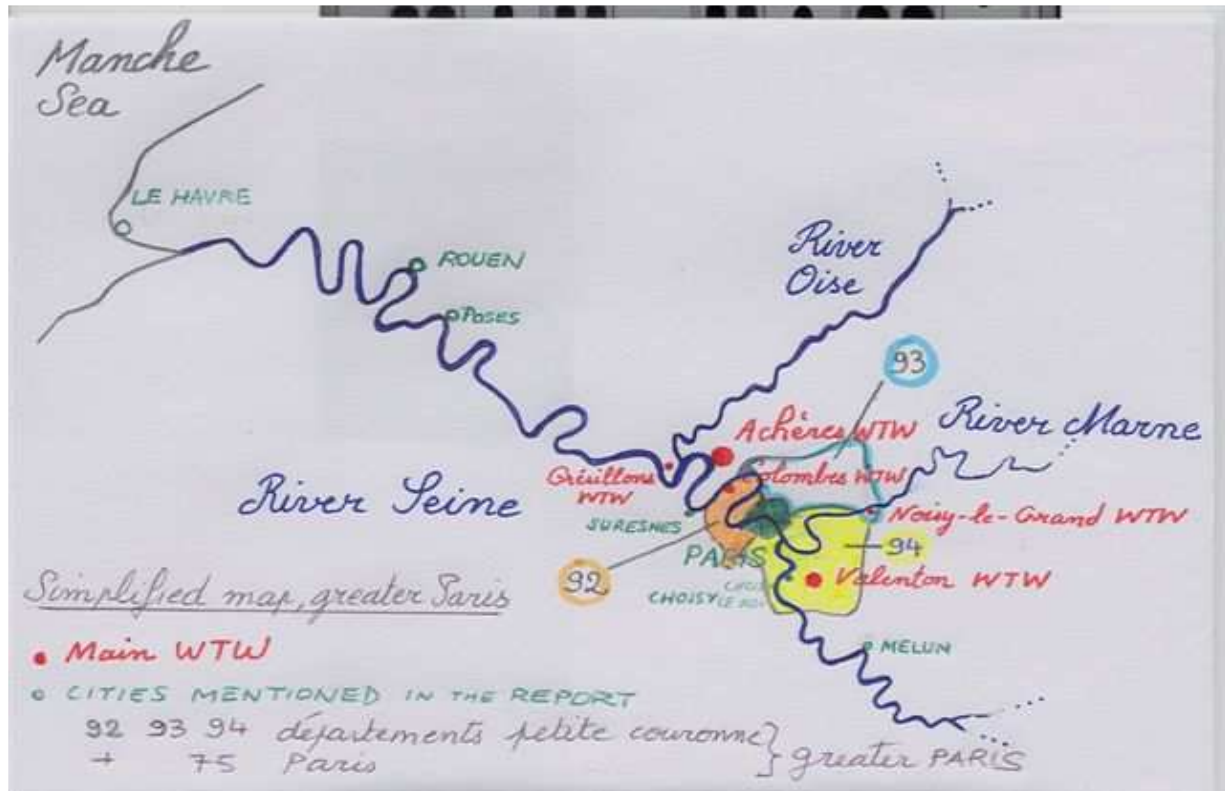 Manche
Sea
LE HAVRE
ROUEN
POSES
River
Oise
93
Achères WTW
River Marne
Grésillons
WTW
Colombes WTW
River Seine
SURESNES
Noisy-le-Grand WTW
PARIS
94
92
Valenton WTW
CHOISY LE ROI
Simplified map, greater Paris
MELUN
Main WTW
CITIES MENTIONED IN THE REPORT
92 93 94 départements petite couronne } greater PARIS
+ 75 Paris